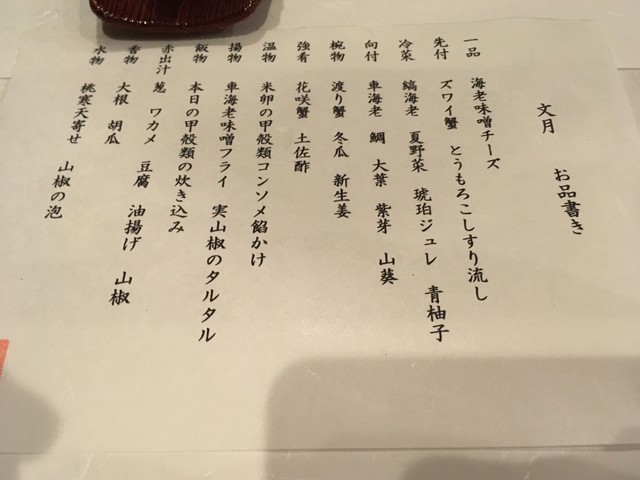 文月　お品書き
一品　海老味噌チーズ
先付　ズワイ蟹　とうもろこしすり流し
冷菜　縞海老　夏野菜　琥珀ジュレ　青柚子
向付　車海老　鯛　大葉　紫芽　山葵
椀物　渡り蟹　冬瓜　新生姜
強肴　花咲蟹　土佐酢
温物　米卵の甲殻類コンソメ餡かけ
揚物　車海老味噌フライ　実山椒のタルタル
飯物　本日の甲殻類の炊き込み
赤出汁　葱　ワカメ　豆腐　油揚げ　山椒
香物　大根　胡瓜
水物　桃寒天寄せ　山椒の泡